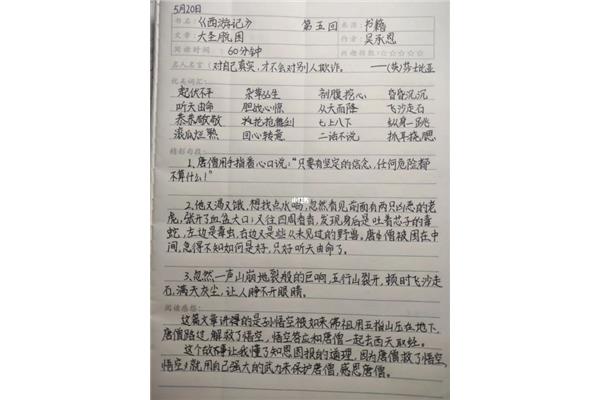 5月20日
书名:《西游记》 第五回 来源:书籍
文章:大圣脱困 作者:吴承恩
阅读时间:60分钟 兴趣指数:☆☆☆☆☆
名人名言:对自己真实,才不会对别人欺诈。——(英)莎士比亚
优美词汇:
起伏不平 杂草丛生 剖腹挖心 昏昏沉沉
听天由命 胆战心惊 从天而降 飞沙走石
恭恭敬敬 七上八下 纵身一跳
滚瓜烂熟 回心转意 二话不说 抓耳挠腮
精彩句段:
1、唐僧用手指着心口说:“只要有坚定的信念,任何危险都
不算什么!”
2、他又渴又饿,想找点水喝,忽然看见前面有两只凶恶的老
虎,张开了血盆大口;又往四周看看,发现身后是吐着芯子的毒
蛇,左边是毒虫,右边又是些从未见过的野兽。唐僧被困在中
间,急得不知如何是好,只好听天由命了。
3、忽然一声山崩地裂般的巨响,五行山裂开,顿时飞沙走
石,满天灰尘,让人睁不开眼睛。
阅读感想:
这篇文章讲的是孙悟空被如来佛祖用五指山压在地下,
唐僧路过,解救了悟空,悟空答应和唐僧一起去西天取经。
这个故事让我懂了知恩图报的道理,因为唐僧救了悟空,
悟空就用自己强大的武力来保护唐僧,感恩唐僧。